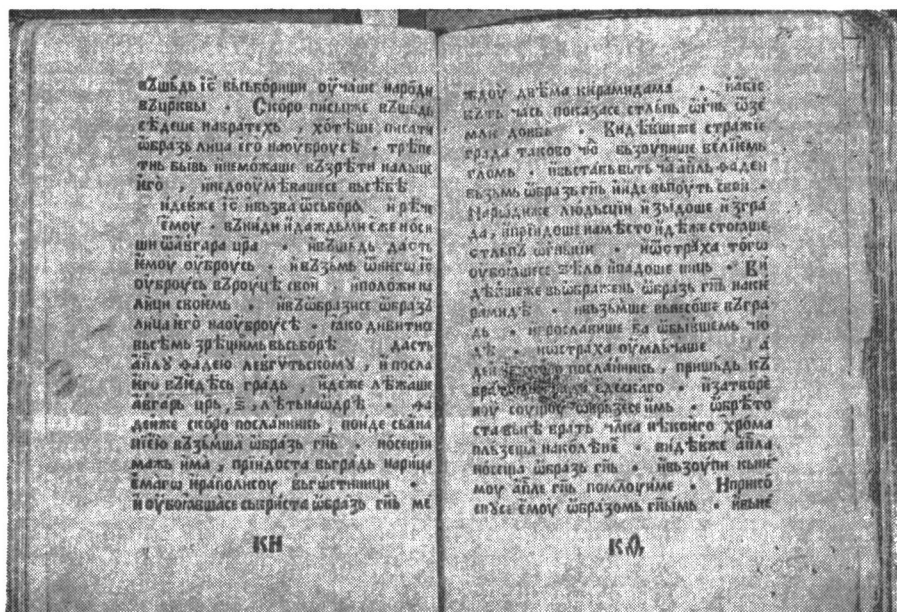 вꙁшьдь і҃с вьсьборищи оу҆чаше народи
вꙁцркви · Скоро письцже вꙁшьдь
сѣдеше набратехь , хотѣше писати
ѡ҆бразь лица его наоуброусѣ · трѣпе
тнь бывь инеможаше вꙁзрѣти налице
него , инедооумѣвашесе вьсебѣ
идеже і҃с ивьзва ѿсьбора и рече
ѐмоу · вꙁниди идаждьми ѐже носи
ши ѿавгара цр҃а · ивьшьдь дасть
ѐмоу оуброусь · ивꙁзьмь ѿнего і҃с
оуброусь вꙁроуцѣ свои · иположи на
лици своѐмь · ивꙁѡбразисе ѡбразꙁ
лица него наоуброусѣ · ꙗко дивитисе
вьсѣмь зрѣщимь вьсьборѣ дасть
ап҃лу фадею левгутьскому , и посла
него вꙁидесь градь , идеже лѣжаше
авгарь цр҃ь , ѕ҃ , лѣть наѡдрѣ · фа
деиже скоро посланникь , поиде сьана
ниею вꙁзьмша ѡбразь гн҃ь · носещи
мажь има , приидоста вьградь нарица
ѐмаго иераполисоу вьгостиници ·
и оубоꙗвшасе ськриста ѡбразь гн҃ь ме
КН
ждоу двѣма кирамидама · иабие
вьть чась показасе стльпь ѡгнь ѿзе
мли донбь · Видѣвшеже стражие
града таково чю҃ вьзоупише велиѐмь
гл҃омь · ивьставь вьть ча ап҃ль фадеи
вьзьмь ѡбразь гн҃ь ииде вьпоуть свои ·
Народиже людьсции изыдоше изгра
да , иприидоше намѣсто идѣже стоꙗше
стльпꙁ ѡгньнии · иѿстраха того
оубоꙗшесе ѕѣло ипадоше ниць · Ви
дѣвшеже вьѡбражень ѡбразь гн҃ь наки
рамидѣ · ивьзьмше вьнесоше вꙁгра
дь · ипрославише ба ѡбывшемь чю
дѣ · иѿстраха оумльчаше а
деи посланникь , пришьдь кꙁ
едескаго · изатворе
ноу соущоу ѿврьзесе имь · ѡбрѣто
ста вьнѣ врать чл҃ка нѣкоего хрома
пльзеща наколѣне · видѣвже ап҃ла
носеща ѡбразь гн҃ь · ивьзоупи кьне
моу ап҃ле гн҃ь помлоуиме · Иприко
снусе ѐмоу ѡбразомь гн҃ьимь · ивьне
КѲ